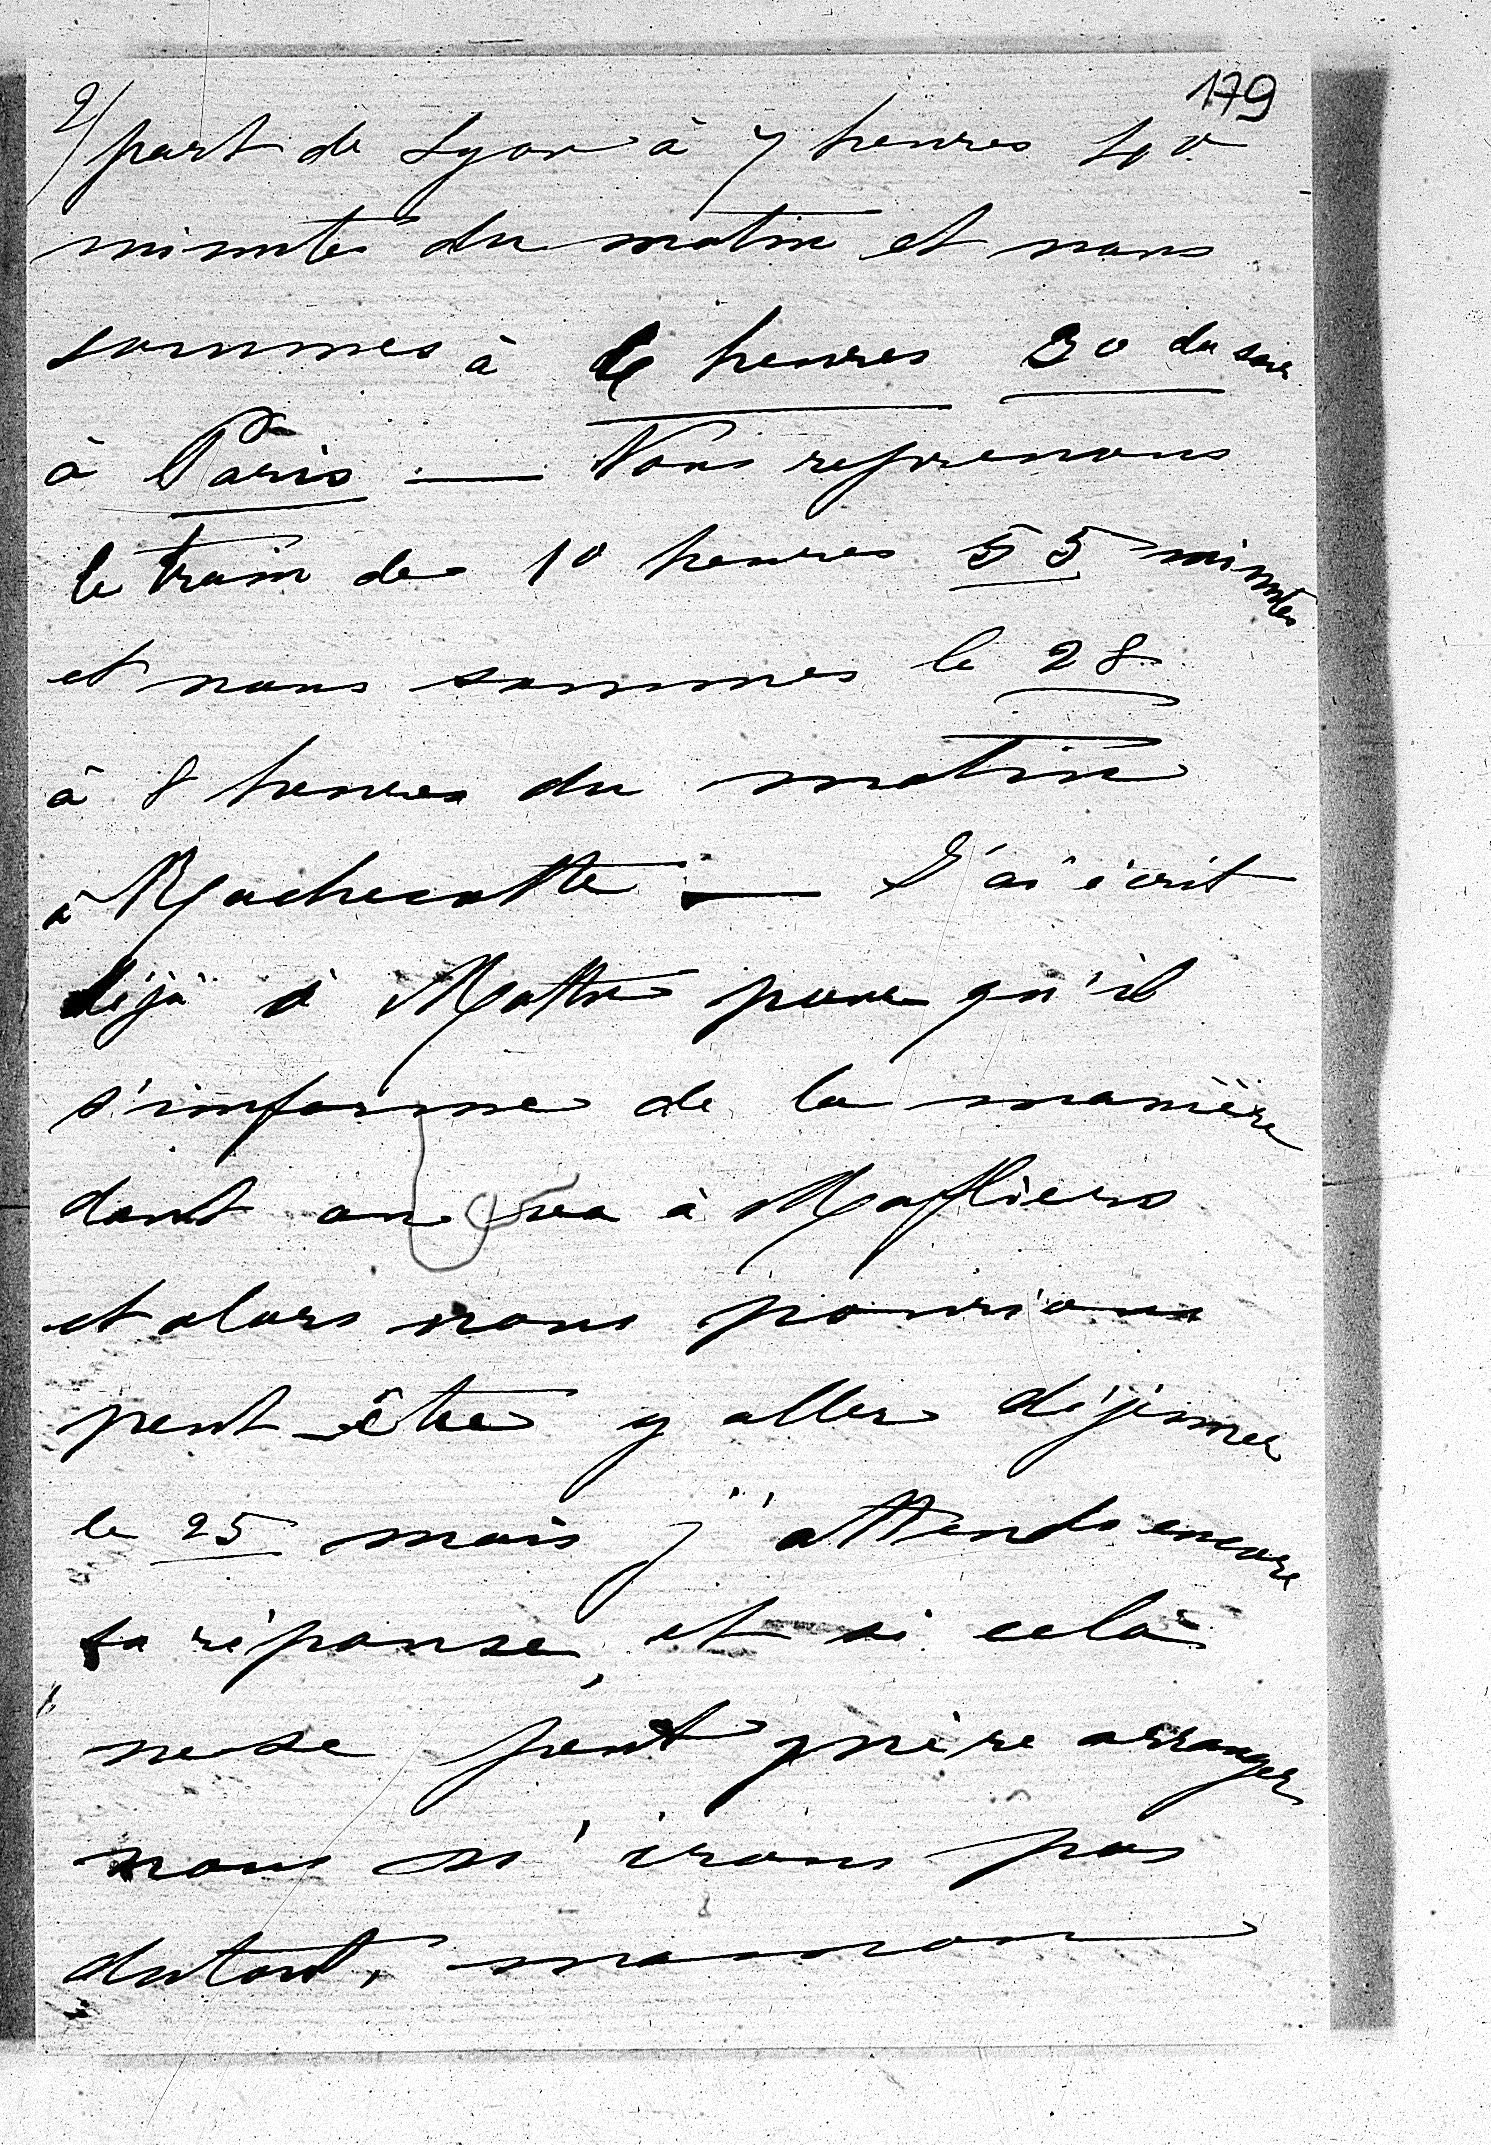 179
2/ part de Lyon à 7 heures 40
minutes du matin et nous
sommes à 6 heures 30 du soir
à Paris — Nous reprenons
le train de 10 heures 55 minutes
et nous sommes le 28
à 8 heures du matin
à Rochecotte — J'ai écrit
déjà à Mattre pour qu'il
s'informe de la manière
dont on va à Maffliers
et alors nous pourrions
peut-être y aller déjeuner
le 25 mais j'attends encore
sa réponse, et si celà
ne se peut guère arranger
nous n'irons pas
du tout, maman